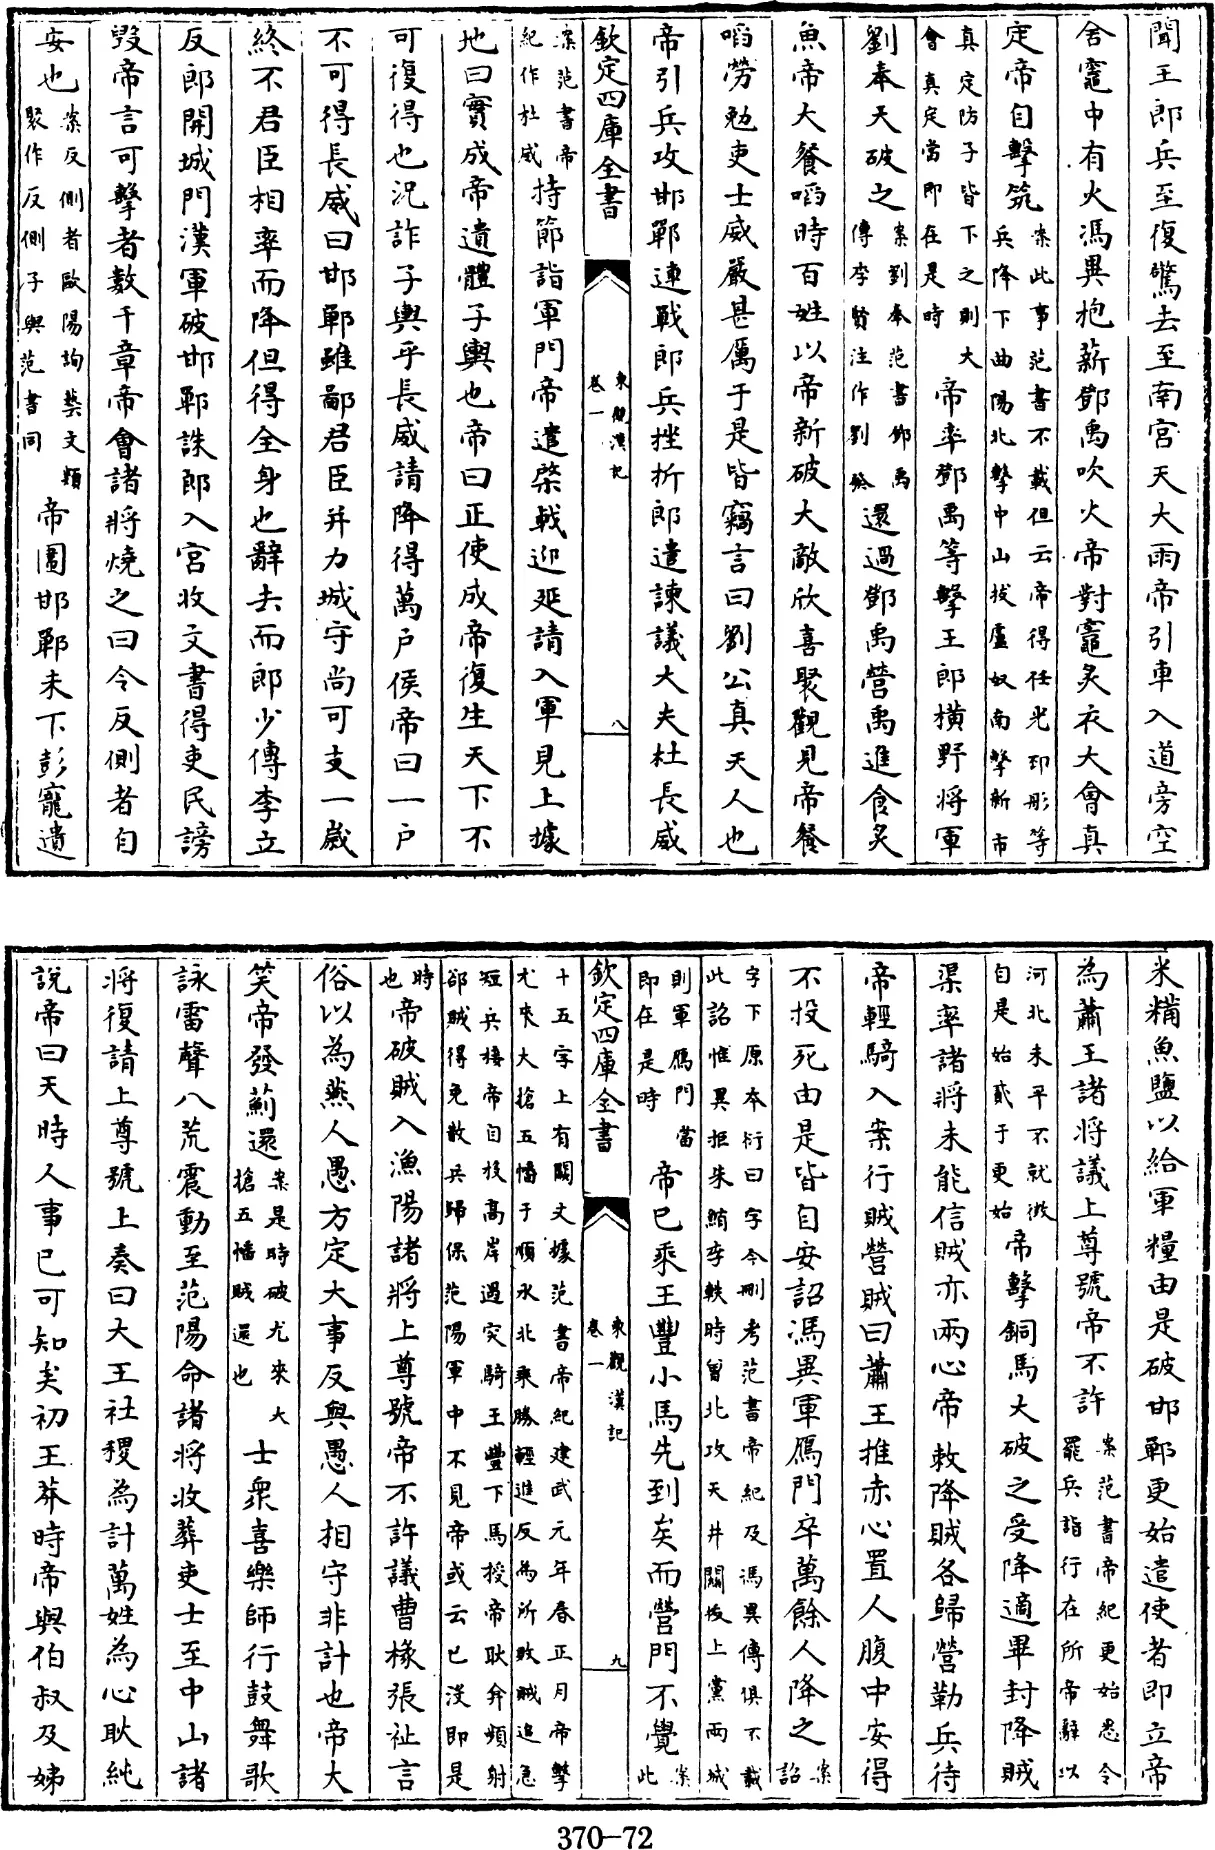 聞王郎兵至復驚去至南宮天大雨帝引車入道旁空
舍竈中有火馮異抱薪鄧禹吹火帝對竈炙衣大會真
定帝自擊筑案此事范書不載但云帝得任光邳彤等兵降下曲陽北擊中山拔盧奴南擊新市
真定防子皆下之則大會真定當即在是時帝率鄧禹等擊王郎橫野將軍
劉奉天破之案劉奉范書鄧禹傳李賢注作劉發還過鄧禹營禹進食炙
魚帝大餐啗時百姓以帝新破大敵欣喜聚觀見帝餐
啗勞勉吏士威嚴甚厲于是皆竊言曰劉公真天人也
帝引兵攻邯鄲連戰郎兵挫折郎遣諫議大夫杜長威
欽定四庫全書
東觀漢記
卷一
八
案范書帝紀作杜威持節詣軍門帝遣棨戟迎延請入軍見上據
地曰實成帝遺體子輿也帝曰正使成帝復生天下不
可復得也況詐子輿乎長威請降得萬户侯帝曰一户
不可得長威曰邯鄲雖鄙君臣并力城守尚可支一嵗
終不君臣相率而降但得全身也辭去而郎少傅李立
反郎開城門漢軍破邯鄲誅郎入宮收文書得吏民謗
毀帝言可擊者數千章帝會諸將燒之曰令反側者自
安也案反側者歐陽詢藝文類聚作反側子與范書同帝圍邯鄲未下彭寵遺
米糒魚鹽以給軍糧由是破邯鄲更始遣使者即立帝
為蕭王諸將議上尊號帝不許案范書帝紀更始悉令罷兵詣行在所帝辭以
河北未平不就徵自是始貳于更始帝擊銅馬大破之受降適畢封降賊
渠率諸將未能信賊亦兩心帝敕降賊各歸營勒兵待
帝輕騎入案行賊營賊曰蕭王推赤心置人腹中安得
不投死由是皆自安詔馮異軍鴈門卒萬餘人降之案詔
字下原本衍曰字今刪考范書帝紀及馮異傳俱不載此詔惟異拒朱鮪李軼時曾北攻天井關拔上黨兩城
則軍鴈門當即在是時帝已乘王豐小馬先到矣而營門不覺案此
欽定四庫全書
東觀漢記
卷一
九
十五字上有闕文據范書帝紀建武元年春正月帝擊尤來大搶五幡于順水北乘勝輕進反為所敗賊追急
短兵接帝自投高岸遇突騎王豐下馬授帝耿弇頻射郤賊得免散兵歸保范陽軍中不見帝或云已沒即是
時也帝破賊入漁陽諸將上尊號帝不許議曹掾張祉言
俗以為燕人愚方定大事反與愚人相守非計也帝大
笑帝發薊還案是時破尤來大搶五幡賊還也士衆喜樂師行鼓舞歌
詠雷聲八荒震動至范陽命諸將收葬吏士至中山諸
將復請上尊號上奏曰大王社稷為計萬姓為心耿純
說帝曰天時人事已可知矣初王莽時帝與伯叔及姊
370-72